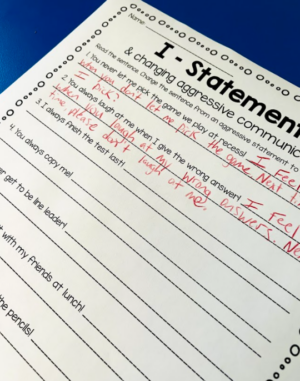 Name
I - Statement
& changing aggressive communic
Read the sentence. Change the sentence from an aggressive statement to
1. You never let me pick the game we play at recess! I Feel
when you don't let me pick the game. Next
I pick?
2. You always laugh at me when I give the wrong answer! I Feel
when you laugh at my wrong answers. Ne
time please don't laugh at me.
3. I always finish the test last!
4. You always copy me!
er get to be line leader!
t with my friends at lunch!
he pencils!